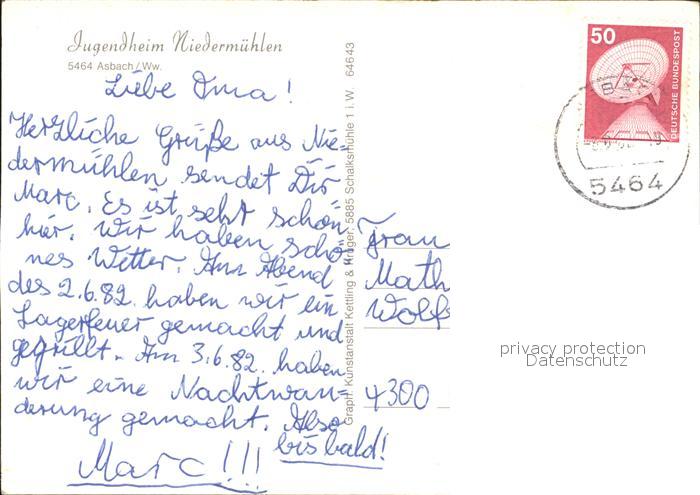 Jugendheim Niedermühlen
5464 Asbach/Ww.
Liebe Oma!
Herzliche Grüße aus Nie-
dermühlen sendet Dir
Marc. Es ist sehr schön
hier. Wir haben schö-
nes Wetter. Am Abend
des 2.6.82. haben wir ein
Lagerfeuer gemacht und
gegrillt. Am 3.6.82. haben
wir eine Nachtwan=
derung gemacht. Also
bis bald!
Marc!!!
Graph. Kunstanstalt Kettling & Krüger, 5885 Schalksmühle 1 i.W. 64643
50
DEUTSCHE BUNDESPOST
5464
Frau
Math
Wolfs
4300
privacy protection
Datenschutz